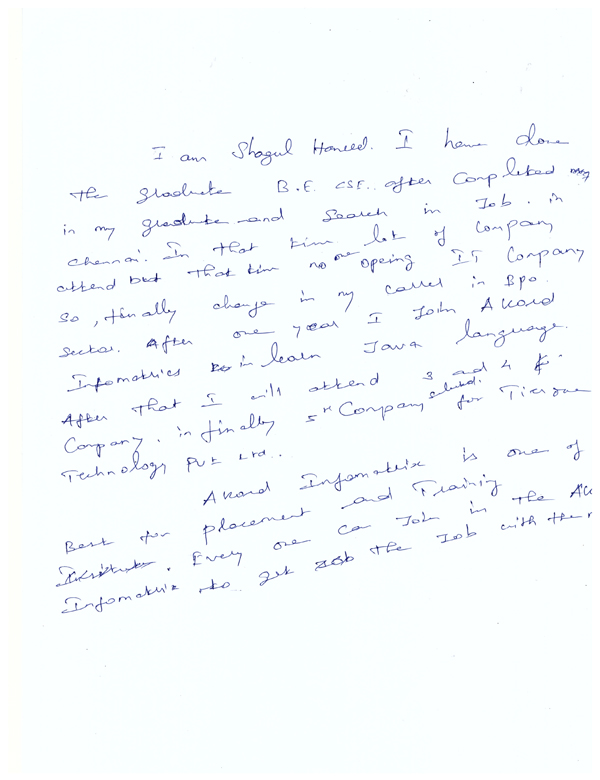 I am Shagul Hameed. I have done
the graduate B.E. CSE.. after Completed my
in my graduate and Search in Job. in
chennai. In that tim lot of Company
attend but that tim no one opeing IT Company
so, finally change in my carrer in BPO.
Sector. After one year I Join Akord
Infomatrics to in learn Java language.
After that I will attend 3 ad 4
Company. in finally 5th Company for
Technology Pvt Ltd..
Akord Infomatrix is one of
Best for placement and Training
Institute. Every one ca Join in the
Infomatrix to get the Job with the